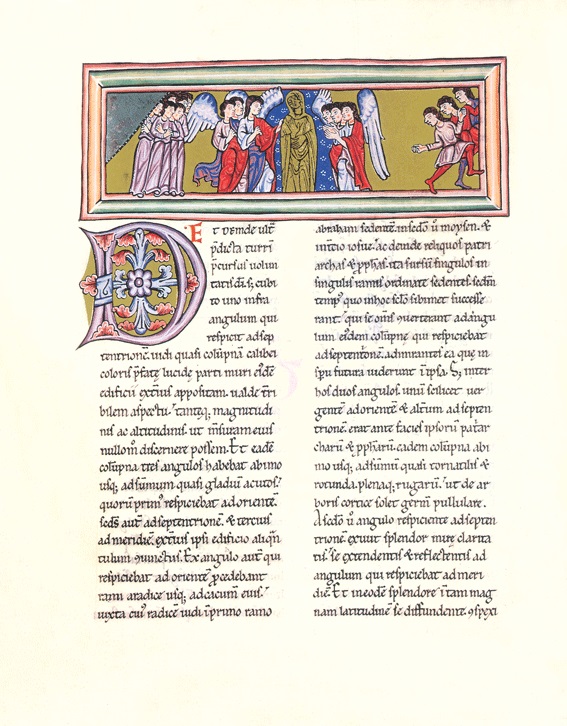 Et deinde ult̄
p̄dictā turrī
p̄cursus volun
tatis dī. s; cubi
to uno infra
angulum qui
respicit adsep
tentrionē. uidi quasi colūpnā calibei
coloris p̄fatę lucidę parti muri eiꝰdē
edificii ext̄ius appositam. ualde t̄ri
bilem aspectu. tantęq; magnitudi
nis ac altitudinis. ut m̄suram eius
nullom̄ discernere possem. Et eadē
colūpna tres angulos habebat abimo
usq; adsūmum quasi gladiū acutos.
quorū primꝰ respiciebat adorientē.
sed̄s aut̄ adseptentrionē. & tercius
ad meridiē. ext̄ius ipsi edificio aliqn̄
tulum ꝯiunctus. Ex angulo aut̄ qui
respiciebat ad orientē p̄cedebant
rami aradice usq; ad cacumē eius.
iuxta cuiꝰ radicē uidi īprimo ramo
abraham sedentē. insed̄o ū moysen. &
intcio iosue. ac deinde reliquos patri
archas & p̄phas. ita sursū singulos in
singulis ramis ordinate sedentes. sedm̄
tempꝰ quo inhoc sc̄lo sibimet successe
rant. qui se om̄s ꝯuerterant ad angu
lum eiꝰdem colūpnę qui respiciebat
adseptentrionē. admirantes ea quę in
spū futura uiderunt ī ipsa. S; inter
hos duos angulos. unū scilicet ver
gentē adorientē & alt̄um adsepten
trionē. erat ante facies ipsorū patar
charū & p̄pharū. eadem colūpna abi
mo usq; adsūmū quasi tornatilis &
rotunda. plenaq; rugarū. ut de ar
boris cortice solet germī pullulare.
A sed̄o ū angulo respiciente adsepten
trionē. exiuit splendor mirę clarita
tis. se extendentis & reflectentis ad
angulum qui respiciebat ad meri
diē. Et ineodē splendore ītam mag
nam latitudinē se diffundente ꝯspexi